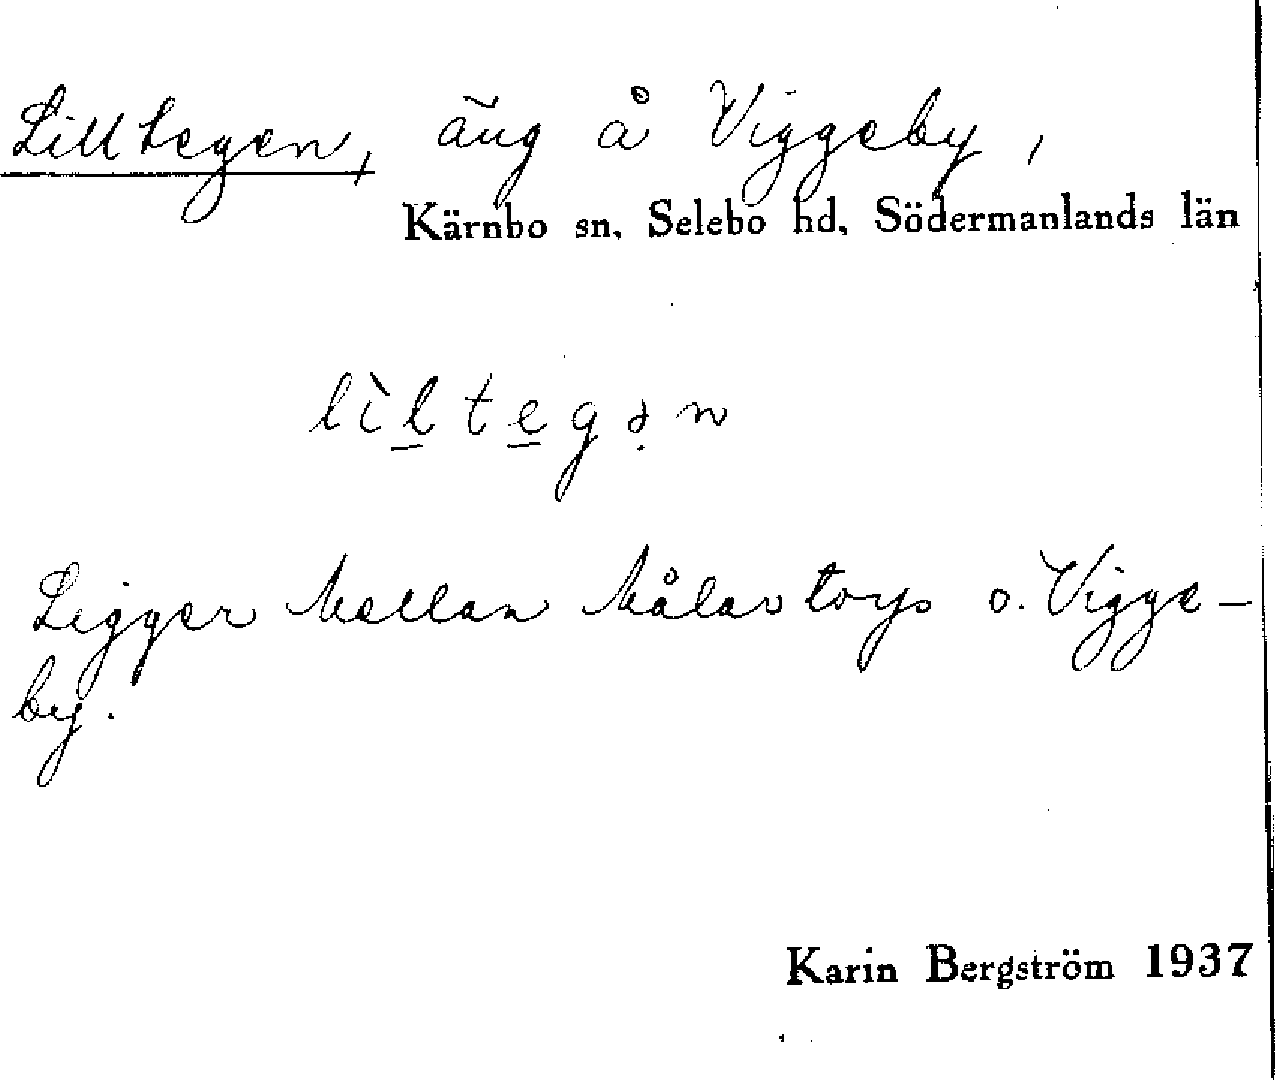 Lilltegen, äng å Viggeby,
Kärnbo sn, Selebo hd, Södermanlands län
lìltegən
Ligger Mellan Målas torp o. Vigge-
by.
Karin Bergström 1937